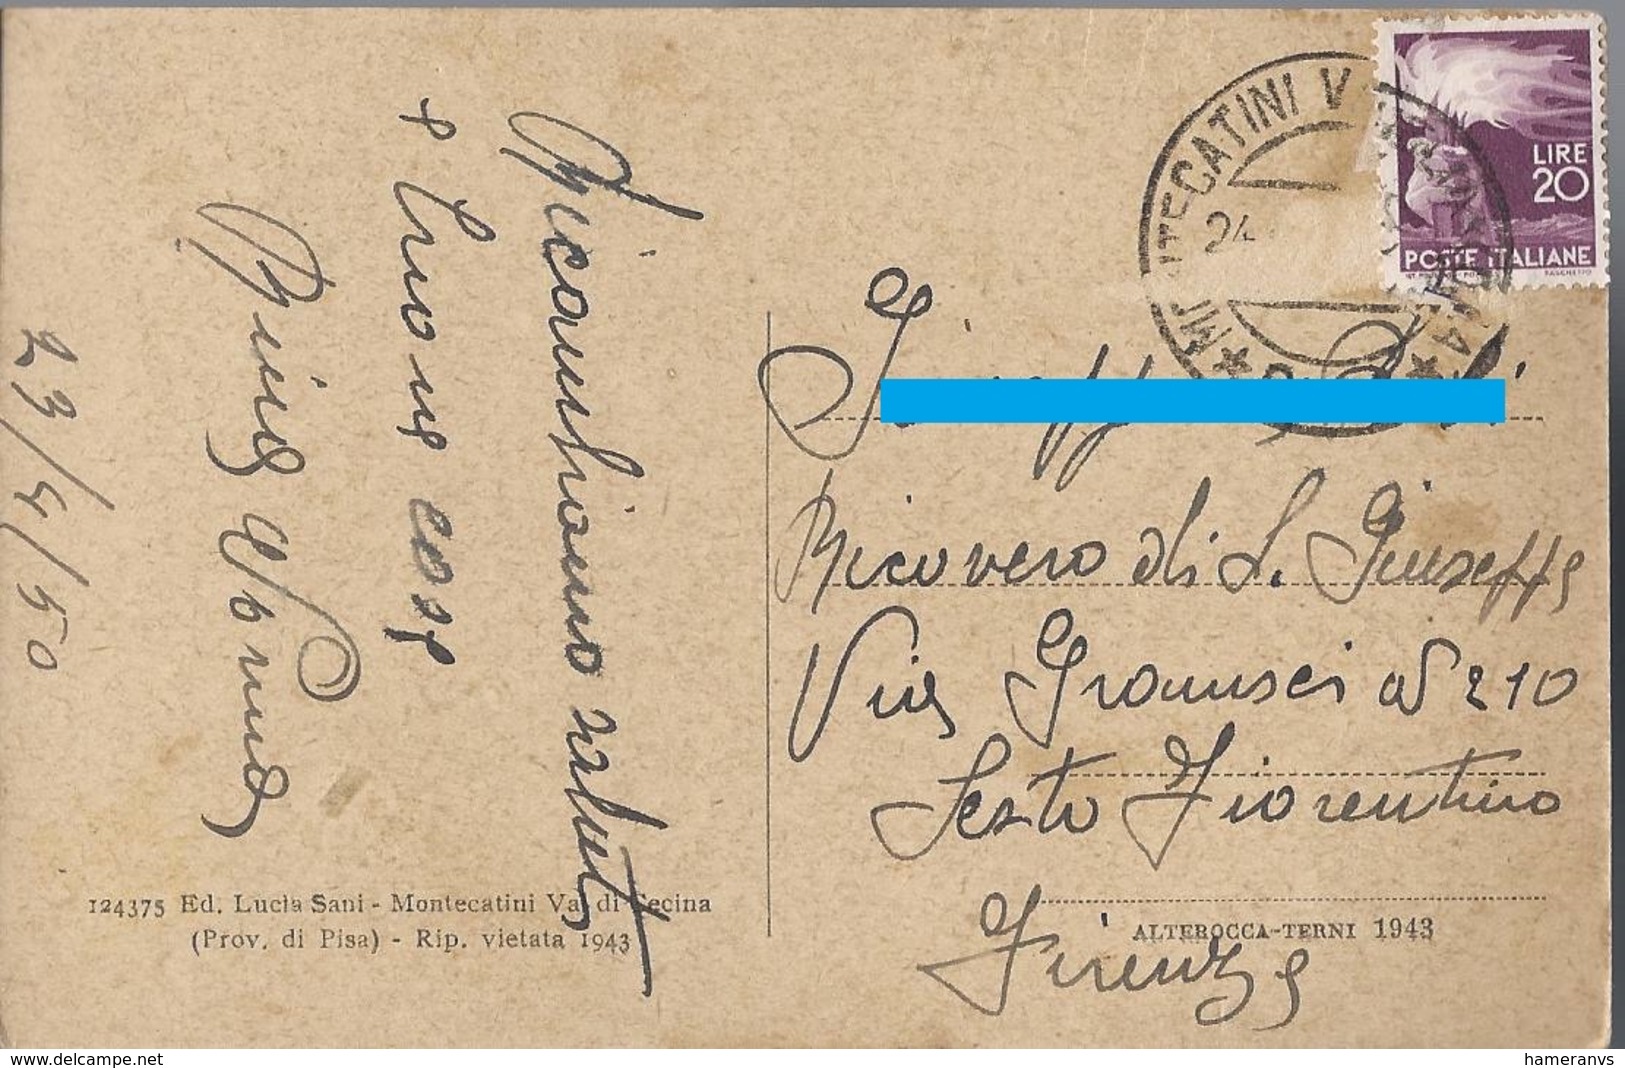 Ricambiamo saluti
e buone cose
Bina e Nonna
23/4/50
124375 Ed. Lucia Sani - Montecatini Val di Cecina
(Prov. di Pisa) - Rip. vietata 1943
MONTECATINI V
24
LIRE
20
POSTE ITALIANE
Ricovero di S. Giuseppe
Via Gramsci N 210
Sesto Fiorentino
Firenze
ALTEROCCA-TERNI 1943
www.delcampe.net
hameranvs